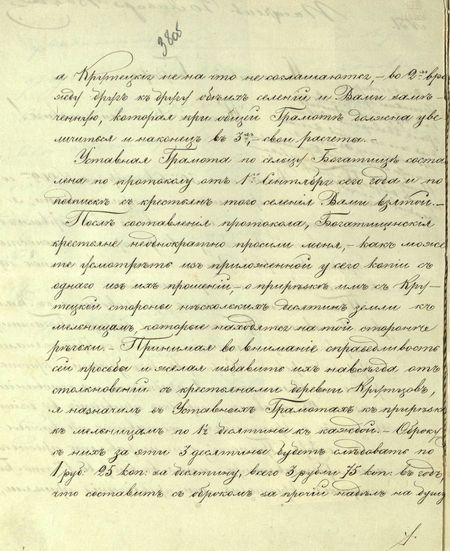 3806
а Крутецкіе ни на что не соглашаются, – во 2хъ вра
жду другъ къ другу обѣихъ селеній и Вами замѣ-
ченную, которая при общей Грамотѣ должна уве
личиться и наконецъ въ 3хъ, – свои расчеты. –
Уставная Грамота по сельцу Богатищу соста
лена по протоколу отъ 1го Сентября сего года и по
подпискѣ съ крестьянъ того селенія Вами взятой. –
Послѣ составленія протокола, Богатищскія
крестьяне неоднократно просили меня, – какъ може
те усмотрѣть изъ приложенной у сего копіи съ
одного изъ ихъ прошеній, – о прирѣзкѣ имъ съ Кру
тецкой стороны нѣсколькихъ десятинъ земли къ
мельницамъ, которые находятся на той сторонѣ
рѣчки. – Принимая во вниманіе справедливость
сей просьбы и желая избавить ихъ навсегда отъ
столкновеній съ крестьянами деревни Крутцовъ,
я назначилъ въ Уставныхъ Грамотахъ къ прирѣзкѣ
къ мельницамъ по 1½ десятины къ каждой. – Оброку
съ нихъ за эти 3 десятины будетъ слѣдовать по
1 руб. 25 коп: за десятину, всего 3 рубли 75 коп: въ годъ,
что составитъ съ оброкомъ за прочій надѣлъ на душу